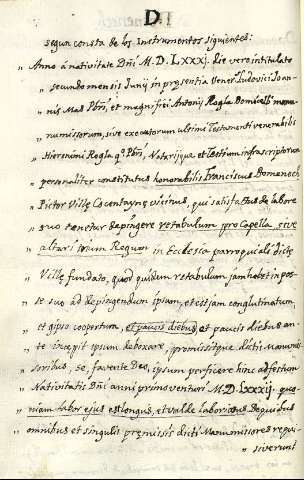 D
segun consta de los Instrumentos siguientes:
" Anno à nativitate Dñi M.D.LXXXJ. Die vero intitulato
" secundo mensis Junij in presentia Vener. Ludovici Joan-
" nis Mas Pbri, et magnifici Antonij Rogla Domicelli manu-
" numissorum, sive executorum ultimi Testamenti venerabilis
" Hieronimi Rogla qº. Pbri, Notarijque et Testium infrascriptorum
" personaliter constitutus honorabilis Franciscus Domenech
" Pictor Villę Cocentaynę vicinus, qui satisfactus de labore
" suo tenetur depingere retabulum pro Capella, sive
" altari trium Regum in Ecclesia parroquiali dictę
" Villę fundato, quod quidem retabulum jam habet in pos-
" se suo ad depingendum ipsum, et etiam conglutinatum,
" et gipso coopertum, et paucis diebus et paucis diebus an-
" te incepit ipsum deboxare, promissitque dictis Manumi-
" soribus, se, favente Deo, ipsum perficere hinc ad festum
" Nativitatis Dñi anni primo venturi M.D.LXXXIJ. quo-
" niam labor ejus est longus, et valde laboriosus de quibus
" omnibus et singulis premissis dicti Manumissores requi-
" siverunt